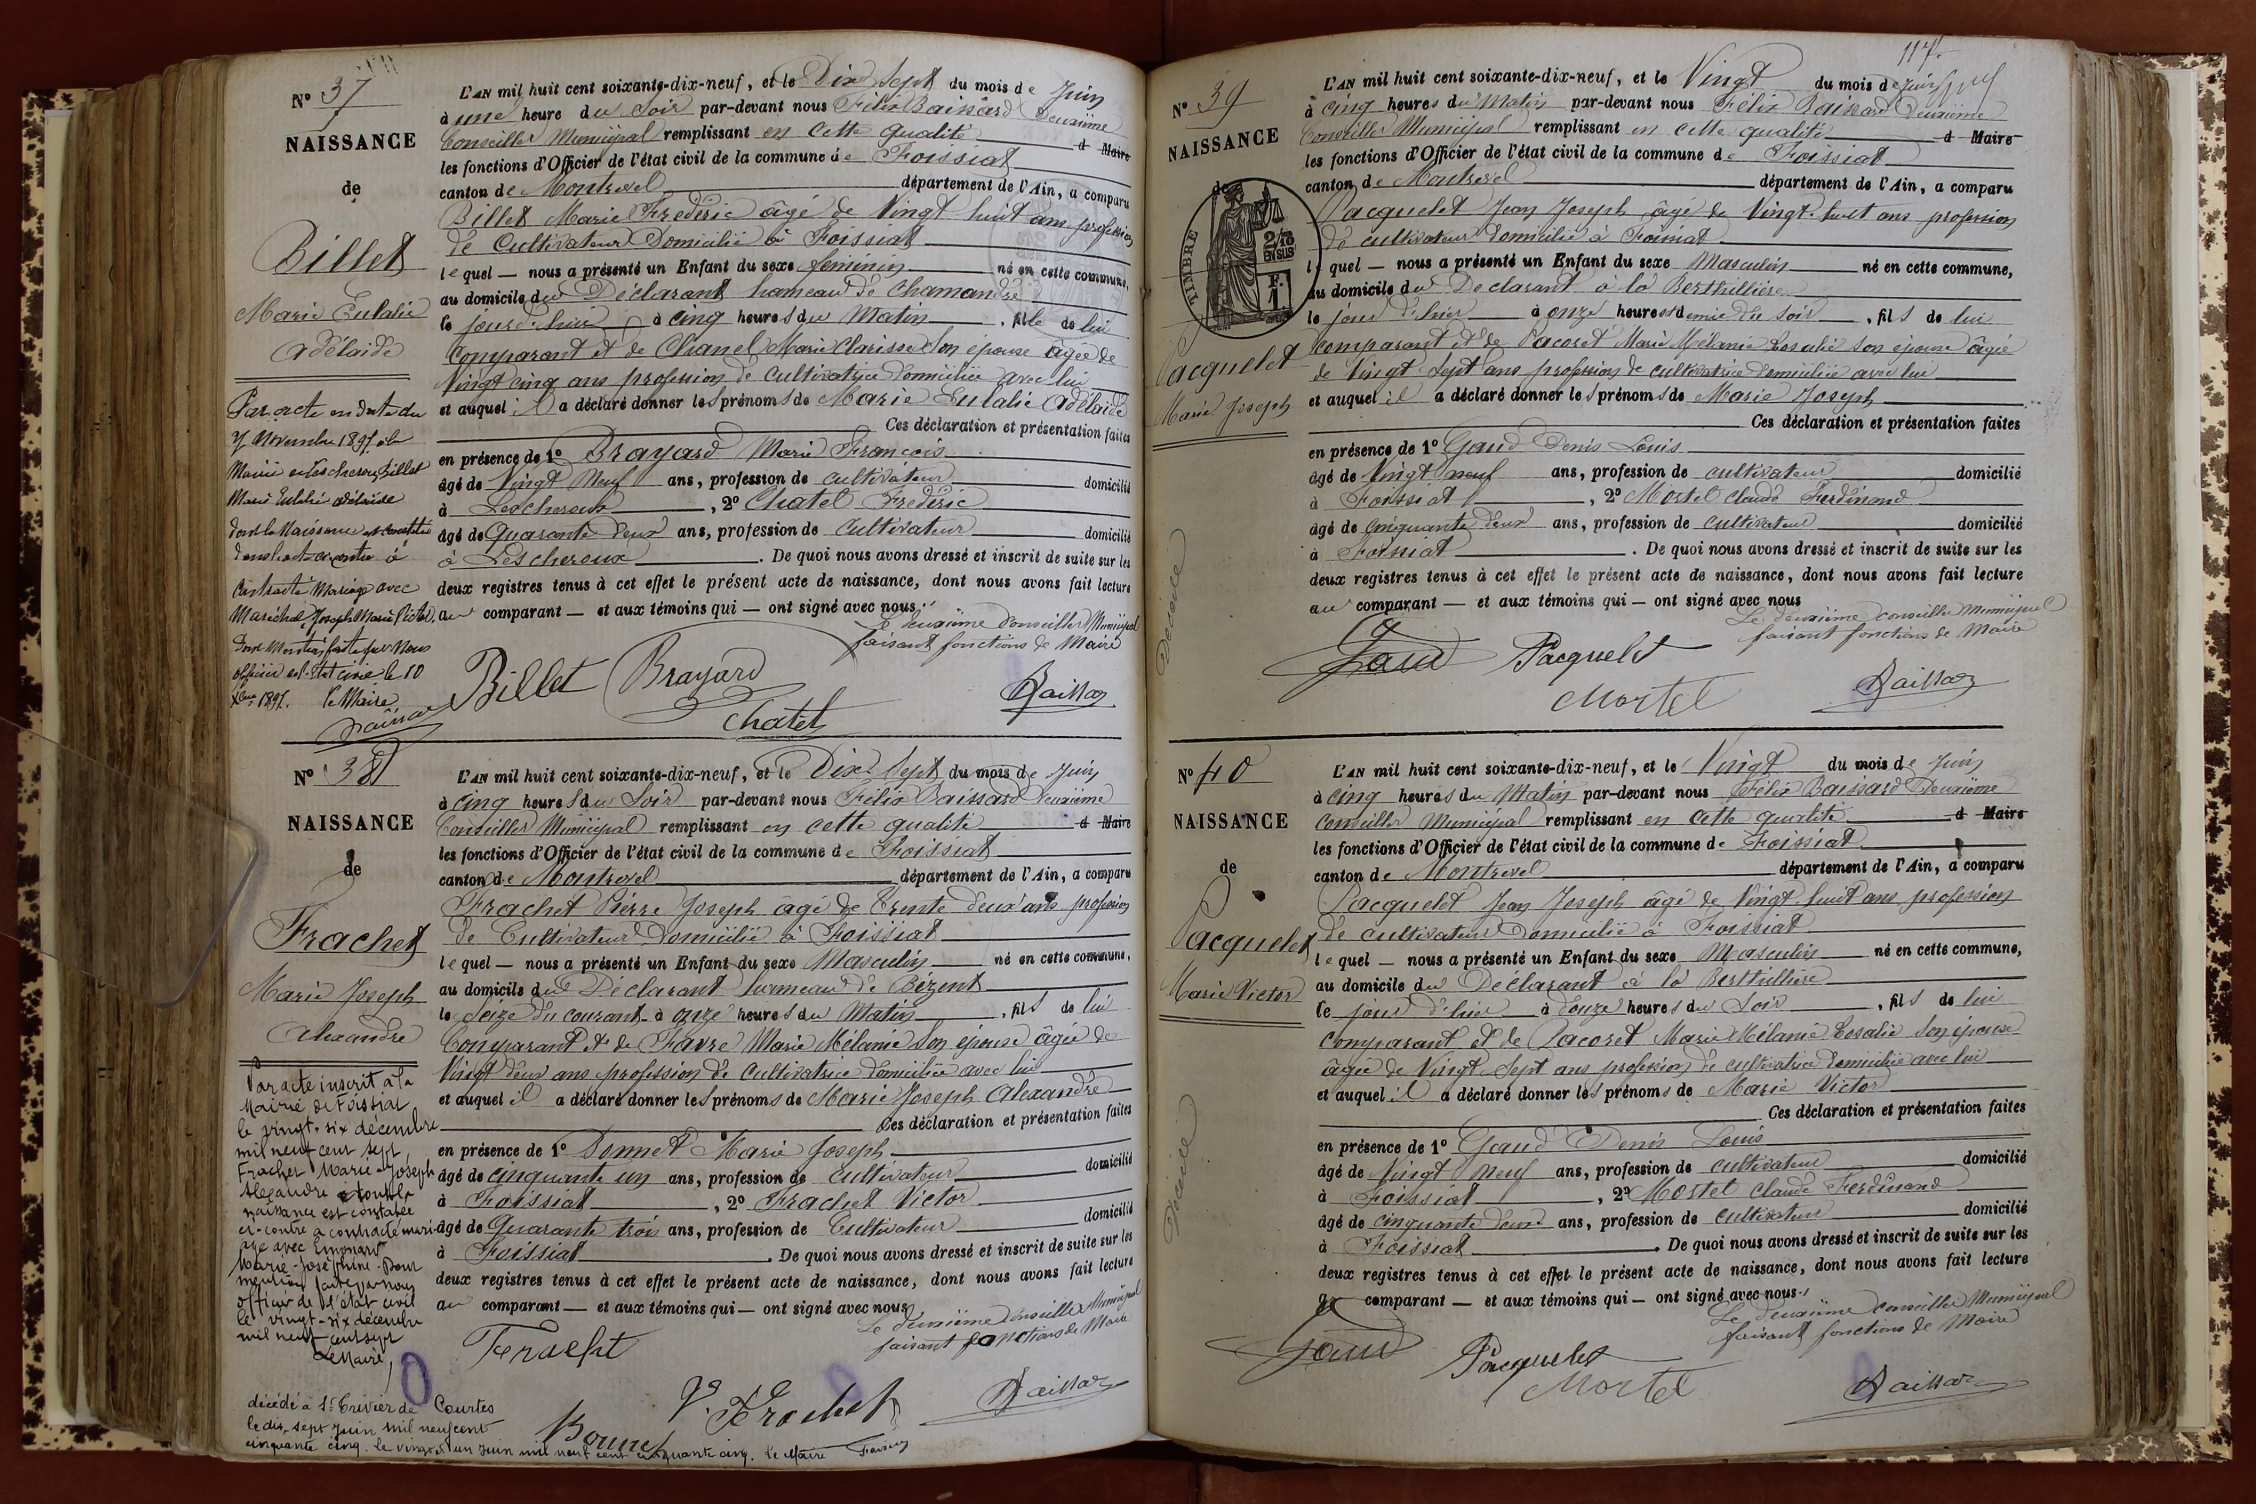 N° 37
NAISSANCE
de
Billet
Marie Eulalie
Adélaide
Par acte en date du
7 Novembre 1897 à la
Mairie de Lescheroux, Billet
Marie Eulalie Adélaïde
dont la Naissance est constatée
dans l'acte ci contre à
Contracté Mariage avec
Maréchal Joseph Marie
Dont Mention faite par Nous
officier de l'Etat civil le 10
1897. Le Maire
L'AN mil huit cent soixante-dix-neuf, et le Dix Sept du mois de Juin
à une heure du Soir par-devant nous Félix Baissard Deuxième
Conseiller Municipal remplissant en cette qualité d Maire
les fonctions d'Officier de l'état civil de la commune de Foissiat
canton de Montrevel département de l'Ain, a comparu
Billet Marie Frédéric âgé de Vingt huit ans profession
de Cultivateur Domicilié à Foissiat
lequel — nous a présenté un Enfant du sexe féminin né en cette commune,
au domicile du Déclarant hameau de Chamandré
le jourd'hui à cinq heures du Matin , fille de lui
Comparant et de Chanel Marie Clarisse Son épouse âgée de
Vingt cinq ans profession de cultivatrice domiciliée avec lui
et auquel il a déclaré donner les prénoms de Marie Eulalie Adélaïde
Ces déclaration et présentation faites
en présence de 1° Brayard Marie François
âgé de Vingt Neuf ans, profession de cultivateur domicilié
à Lescheroux , 2° Chatel Frédéric
âgé de Quarante deux ans, profession de Cultivateur domicilié
à Lescheroux . De quoi nous avons dressé et inscrit de suite sur les
deux registres tenus à cet effet le présent acte de naissance, dont nous avons fait lecture
au comparant — et aux témoins qui — ont signé avec nous
Le deuxième Conseiller Municipal
faisant fonctions de Maire
Billet Brayard
Chatel
Baissard
N° 38
NAISSANCE
de
Frachet
Marie Joseph
Alexandre
Par acte inscrit à la
Mairie de Foissiat
le vingt-six décembre
mil neuf cent sept,
Frachet Marie-Joseph
Alexandre dont la
naissance est constatée
ci-contre a contracté mari-
age avec
Marie-Joséphine. Dont
mention faite par nous
officier de l'état civil
le vingt-six décembre
mil neuf cent sept
Le Maire,
décédé à St Trivier de Courtes
le dix-sept Juin mil neuf cent
cinquante cinq. le vingt et un Juin mil neuf cent cinquante cinq. le Maire
L'AN mil huit cent soixante-dix-neuf, et le Dix Sept du mois de Juin
à cinq heures du Soir par-devant nous Félix Baissard Deuxième
Conseiller Municipal remplissant en cette qualité d Maire
les fonctions d'Officier de l'état civil de la commune de Foissiat
canton de Montrevel département de l'Ain, a comparu
Frachet Pierre Joseph âgé de Trente deux ans profession
de Cultivateur Domicilié à Foissiat
lequel — nous a présenté un Enfant du sexe Masculin né en cette commune,
au domicile du Déclarant hameau de Bézent
le Seize du courant à onze heures du Matin , fils de lui
Comparant et de Favre Marie Mélanie Son épouse âgée de
Vingt deux ans profession de Cultivatrice domiciliée avec lui
et auquel il a déclaré donner les prénoms de Marie Joseph Alexandre
Ces déclaration et présentation faites
en présence de 1° Donnet Marie Joseph
âgé de cinquante un ans, profession de cultivateur domicilié
à Foissiat , 2° Frachet Victor
âgé de Quarante trois ans, profession de Cultivateur domicilié
à Foissiat . De quoi nous avons dressé et inscrit de suite sur les
deux registres tenus à cet effet le présent acte de naissance, dont nous avons fait lecture
au comparant — et aux témoins qui — ont signé avec nous
Le deuxième Conseiller Municipal
faisant fonctions de Maire
Frachet
V. Frachet
Baissard
117
N° 39
NAISSANCE
de
TIMBRE
2/10
EN SUS
F.
1.
Pacquelet
Marie Joseph
Décédé
L'AN mil huit cent soixante-dix-neuf, et le Vingt du mois de Juin
à cinq heures du Matin par-devant nous Félix Baissard Deuxième
Conseiller Municipal remplissant en cette qualité d Maire
les fonctions d'Officier de l'état civil de la commune de Foissiat
canton de Montrevel département de l'Ain, a comparu
Pacquelet Jean Joseph âgé de Vingt-huit ans profession
de cultivateur domicilié à Foissiat
lequel — nous a présenté un Enfant du sexe Masculin né en cette commune,
au domicile du Déclarant à la Berthillière
le jour d'hier à onze heures et demie du soir , fils de lui
comparant et de Pacoret Marie Mélanie Rosalie Son épouse âgée
de Vingt Sept ans profession de cultivatrice domiciliée avec lui
et auquel il a déclaré donner les prénoms de Marie Joseph
Ces déclaration et présentation faites
en présence de 1° Gaud Denis Louis
âgé de Vingt neuf ans, profession de cultivateur domicilié
à Foissiat , 2° Mortel Claude Ferdinand
âgé de cinquante deux ans, profession de cultivateur domicilié
à Foissiat . De quoi nous avons dressé et inscrit de suite sur les
deux registres tenus à cet effet le présent acte de naissance, dont nous avons fait lecture
au comparant — et aux témoins qui — ont signé avec nous
Le deuxième conseiller Municipal
faisant fonctions de Maire
Gaud Pacquelet
Mortel
Baissard
N° 40
NAISSANCE
de
Pacquelet
Marie Victor
Décédé
L'AN mil huit cent soixante-dix-neuf, et le Vingt du mois de Juin
à cinq heures du Matin par-devant nous Félix Baissard Deuxième
Conseiller Municipal remplissant en cette qualité d Maire
les fonctions d'Officier de l'état civil de la commune de Foissiat
canton de Montrevel département de l'Ain, a comparu
Pacquelet Jean Joseph âgé de Vingt-huit ans profession
de cultivateur Domicilié à Foissiat
lequel — nous a présenté un Enfant du sexe Masculin né en cette commune,
au domicile du Déclarant à la Berthillière
le jour d'hier à douze heures du Soir , fils de lui
Comparant et de Pacoret Marie Mélanie Rosalie Son épouse
âgée de Vingt Sept ans profession de cultivatrice domiciliée avec lui
et auquel il a déclaré donner les prénoms de Marie Victor
Ces déclaration et présentation faites
en présence de 1° Gaud Denis Louis
âgé de Vingt neuf ans, profession de cultivateur domicilié
à Foissiat , 2° Mortel Claude Ferdinand
âgé de cinquante deux ans, profession de cultivateur domicilié
à Foissiat . De quoi nous avons dressé et inscrit de suite sur les
deux registres tenus à cet effet le présent acte de naissance, dont nous avons fait lecture
au comparant — et aux témoins qui — ont signé avec nous
Le deuxième conseiller Municipal
faisant fonctions de Maire
Gaud
Pacquelet
Mortel
Baissard